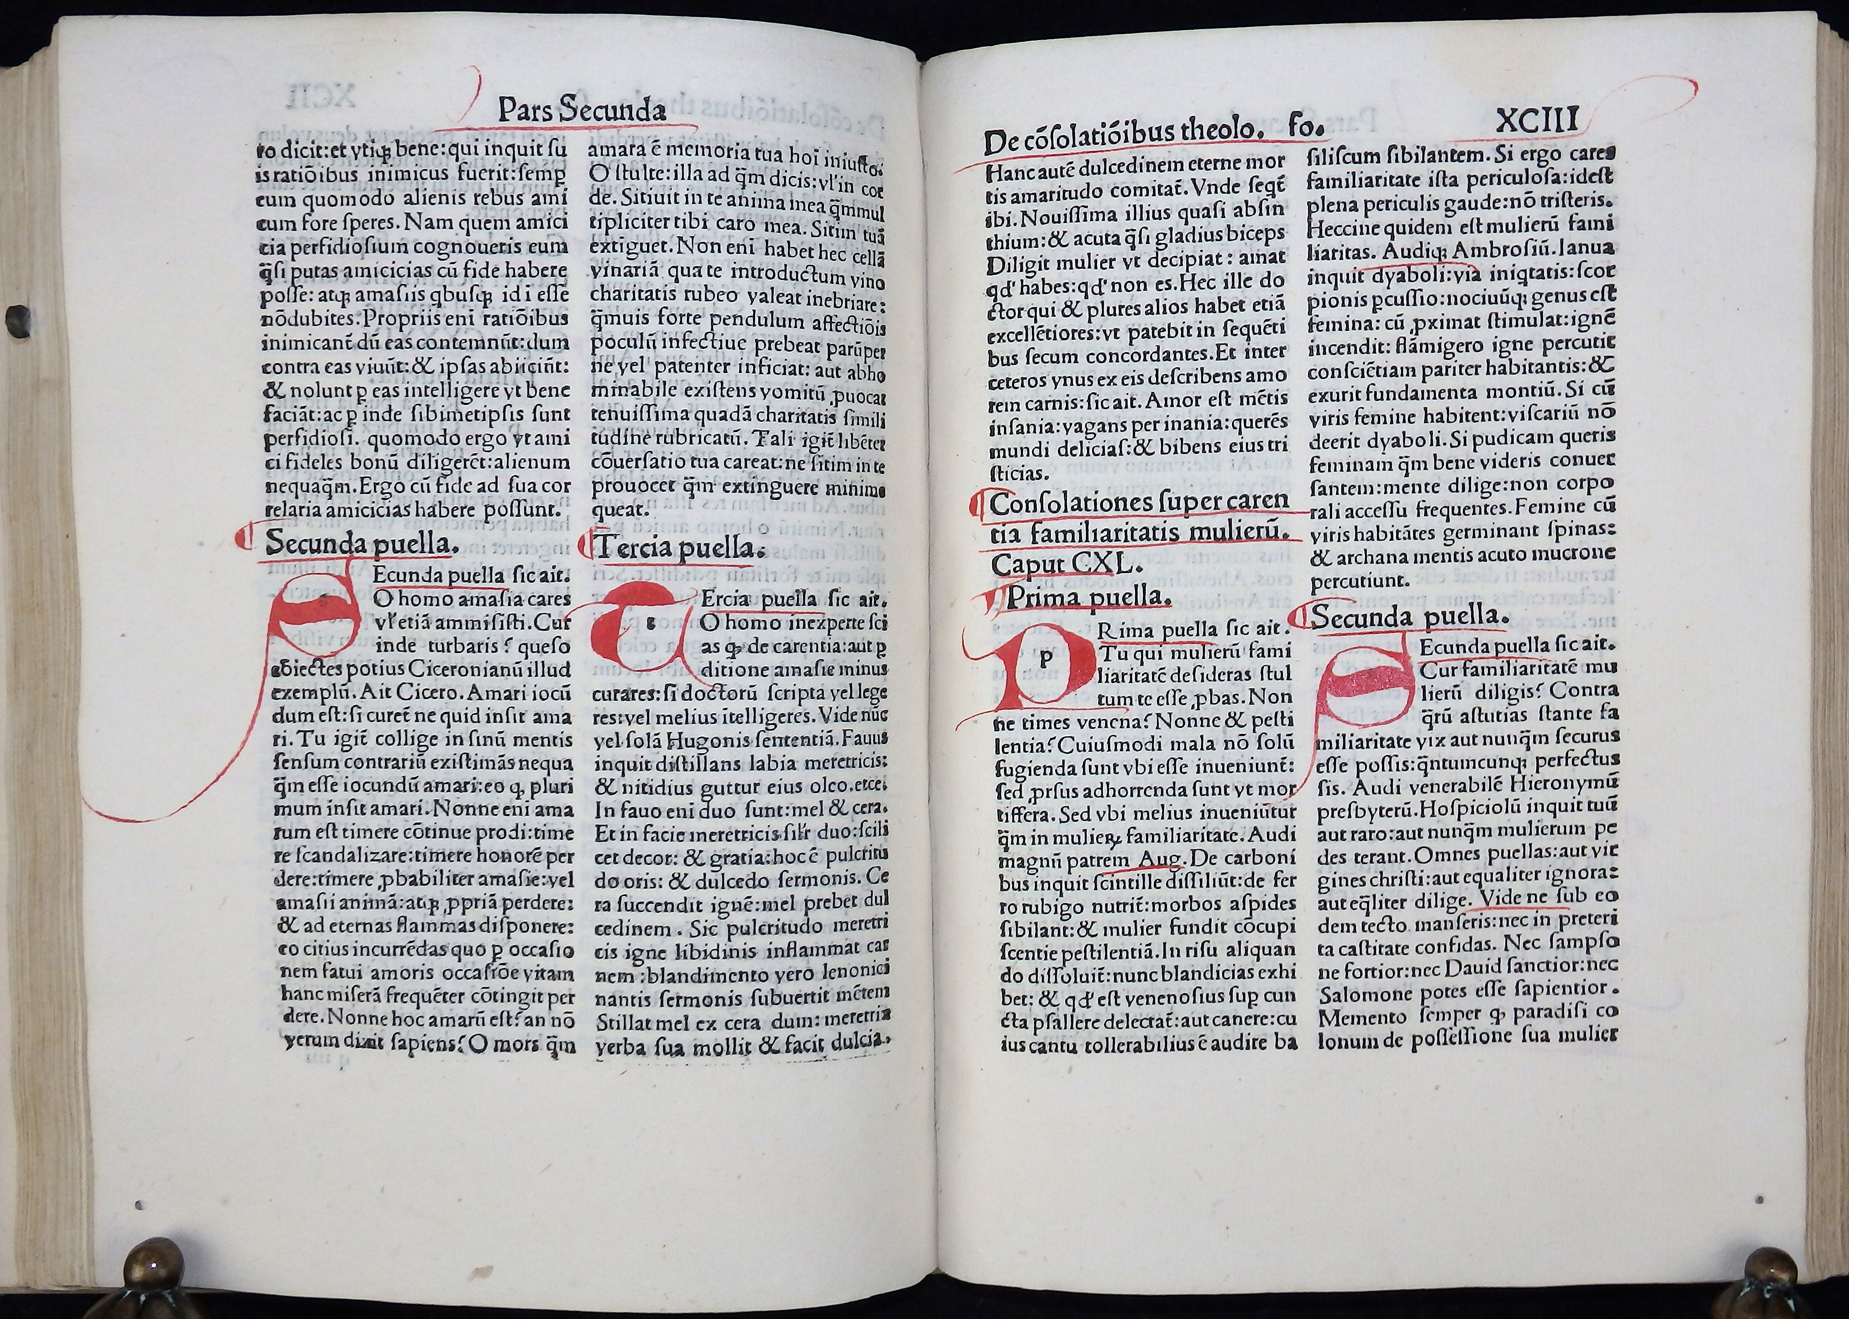 Pars Secunda
ro dicit:et vtiqꝫ bene:qui inquit ſu
is ratiōibus inimicus fuerit:ſemꝑ
eum quomodo alienis rebus ami
cum fore ſperes. Nam quem amici
cia perfidioſium cognoueris eum
q̄ſi putas amicicias cū fide habere
poſſe: atqꝫ amaſiis qbuſqꝫ id i eſſe
nōdubites. Propriis eni ratiōibus
inimicant̄ dū eas contemnūt:dum
contra eas viuūt:& ipſas abiiciūt:
& nolunt ꝑ eas intelligere vt bene
faciāt:ac ꝑ inde ſibimetipſis ſunt
perfidioſi. quomodo ergo vt ami
ci fideles bonū diligerēt:alienum
nequaq̄m. Ergo cū fide ad ſua cor
relaria amicicias habere poſſunt.
Secunda puella.
Ecunda puella ſic ait.
O homo amaſia cares
vl' etiā ammiſiſti. Cur
inde turbaris? queſo
obiectes potius Ciceronianū illud
exemplū. Ait Cicero. Amari iocū
dum eſt:ſi curet̄ ne quid inſit ama
ri. Tu igit̄ collige in ſinū mentis
ſenſum contrariū exiſtimās nequa
q̄m eſſe iocundū amari:eo ꝙ pluri
mum inſit amari. Nonne eni ama
rum eſt timere cōtinue prodi:time
re ſcandalizare:timere honorē per
dere:timere ꝓbabiliter amaſie:vel
amaſii animā:atqꝫ ꝓpriā perdere:
& ad eternas flammas diſponere:
eo citius incurrēdas quo ꝑ occaſio
nem fatui amoris occaſiōe vitam
hanc miſerā frequēter cōtingit per
dere. Nonne hoc amarū eſt? an nō
verum dixit ſapiens? O mors q̄m
amara ē memoria tua hoi iniuſto.
O ſtulte: illa ad q̄m dicis: vl' in cor
de. Sitiuit in te anima mea q̄mmul
tipliciter tibi caro mea. Sitim tuā
extīguet. Non eni habet hec cellā
vinariā qua te introductum vino
charitatis rubeo valeat inebriare:
q̄muis forte pendulum affectiōis
poculū infectiue prebeat parūper
ne vel patenter inficiat: aut abho
minabile exiſtens vomitū ꝓuocat
tenuiſſima quadā charitatis ſimili
tudine rubricatū. Tali igit̄ libēter
cōuerſatio tua careat:ne ſitim in te
prouocet q̄m extinguere minime
queat.
Tercia puella.
Ercia puella ſic ait.
O homo inexperte ſci
as ꝙ de carentia:aut ꝑ
ditione amaſie minus
curares: ſi doctorū ſcripta vel lege
res:vel melius ītelligeres. Vide nūc
vel ſolā Hugonis ſententiā. Fauus
inquit diſtillans labia meretricis:
& nitidius guttur eius oleo.etcet
In fauo eni duo ſunt:mel & cera.
Et in facie meretricis ſil'r duo:ſcili
cet decor: & gratia: hoc ē pulcritu
do oris: & dulcedo ſermonis. Ce
ra ſuccendit ignē: mel prebet dul
cedinem. Sic pulcritudo meretri
cis igne libidinis inflammat car
nem: blandimento vero lenonici
nantis ſermonis ſubuertit mētem
Stillat mel ex cera dum: meretrix
verba ſua mollit & facit dulcia.
De cōſolatiōibus theolo. fo. XCIII
Hanc autē dulcedinem eterne mor
tis amaritudo comitat̄. Vnde ſeqt̄
ibi. Nouiſſima illius quaſi abſin
thium:& acuta q̄ſi gladius biceps
Diligit mulier vt decipiat: amat
qd' habes:qd' non es. Hec ille do
ctor qui & plures alios habet etiā
excellētiores: vt patebit in ſequēti
bus ſecum concordantes. Et inter
ceteros vnus ex eis deſcribens amo
rem carnis: ſic ait. Amor eſt mētis
inſania: vagans per inania: querēs
mundi delicias:& bibens eius tri
ſticias.
Conſolationes ſuper caren
tia familiaritatis mulierū.
Caput CXL.
Prima puella.
p
Rima puella ſic ait.
Tu qui mulierū fami
liaritatē deſideras ſtul
tum te eſſe ꝓbas. Non
ne times venena? Nonne & peſti
lentia? Cuiuſmodi mala nō ſolū
fugienda ſunt vbi eſſe inueniunt̄:
ſed ꝓrſus adhorrenda ſunt vt mor
tiffera. Sed vbi melius inueniūtur
q̄m in mulieꝝ familiaritate. Audi
magnū patrem Aug. De carboni
bus inquit ſcintille diſſiliūt: de fer
ro rubigo nutrit̄: morbos aſpides
ſibilant: & mulier fundit cōcupi
ſcentie peſtilentiā. In riſu aliquan
do diſſoluit̄: nunc blandicias exhi
bet: & qd' eſt venenoſius ſuꝑ cun
cta pſallere delectat̄: aut canere: cu
ius cantu tollerabilius ē audire ba
ſiliſcum ſibilantem. Si ergo cares
familiaritate iſta periculoſa: ideſt
plena periculis gaude: nō triſteris.
Heccine quidem eſt mulierū fami
liaritas. Audiqꝫ Ambroſiū. Ianua
inquit dyaboli: via iniqtatis: ſcor
pionis ꝑcuſſio: nociuūqꝫ genus eſt
femina: cū ꝓximat ſtimulat: ignē
incendit: flāmigero igne percutit
conſciētiam pariter habitantis: &
exurit fundamenta montiū. Si cū
viris femine habitent: viſcariū nō
deerit dyaboli. Si pudicam queris
feminam q̄m bene videris conuer
ſantem: mente dilige: non corpo
rali acceſſu frequentes. Femine cū
viris habitātes germinant ſpinas:
& archana mentis acuto mucrone
percutiunt.
Secunda puella.
Ecunda puella ſic ait.
Cur familiaritatē mu
lierū diligis? Contra
q̄rū aſtutias ſtante fa
miliaritate vix aut nunq̄m ſecurus
eſſe poſſis: q̄ntumcunqꝫ perfectus
ſis. Audi venerabilē Hieronymū
preſbyterū. Hoſpiciolū inquit tuū
aut raro: aut nunq̄m mulierum pe
des terant. Omnes puellas: aut vir
gines chriſti: aut equaliter ignora:
aut eq̄liter dilige. Vide ne ſub eo
dem tecto manſeris: nec in preteri
ta caſtitate confidas. Nec ſampſo
ne fortior: nec Dauid ſanctior: nec
Salomone potes eſſe ſapientior.
Memento ſemper ꝙ paradiſi co
lonum de poſſeſſione ſua mulier